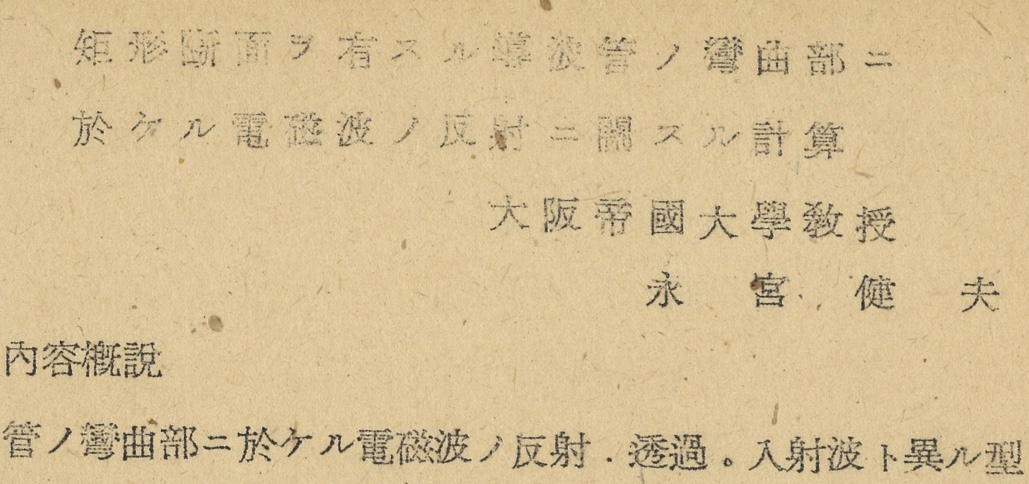 矩形断面ヲ有スル導波管ノ彎曲部ニ
於ケル電磁波ノ反射ニ關スル計算
大阪帝國大學敎授
永宮健夫
內容槪說
管ノ彎曲部ニ於ケル電磁波ノ反射．透過。入射波ト異ル型